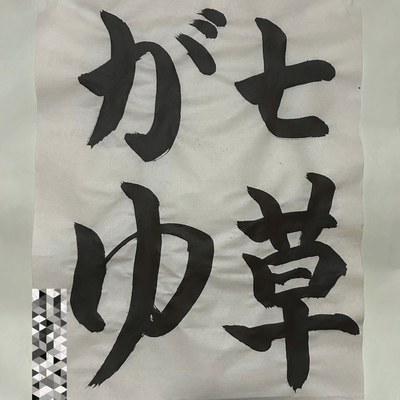 七草
がゆ